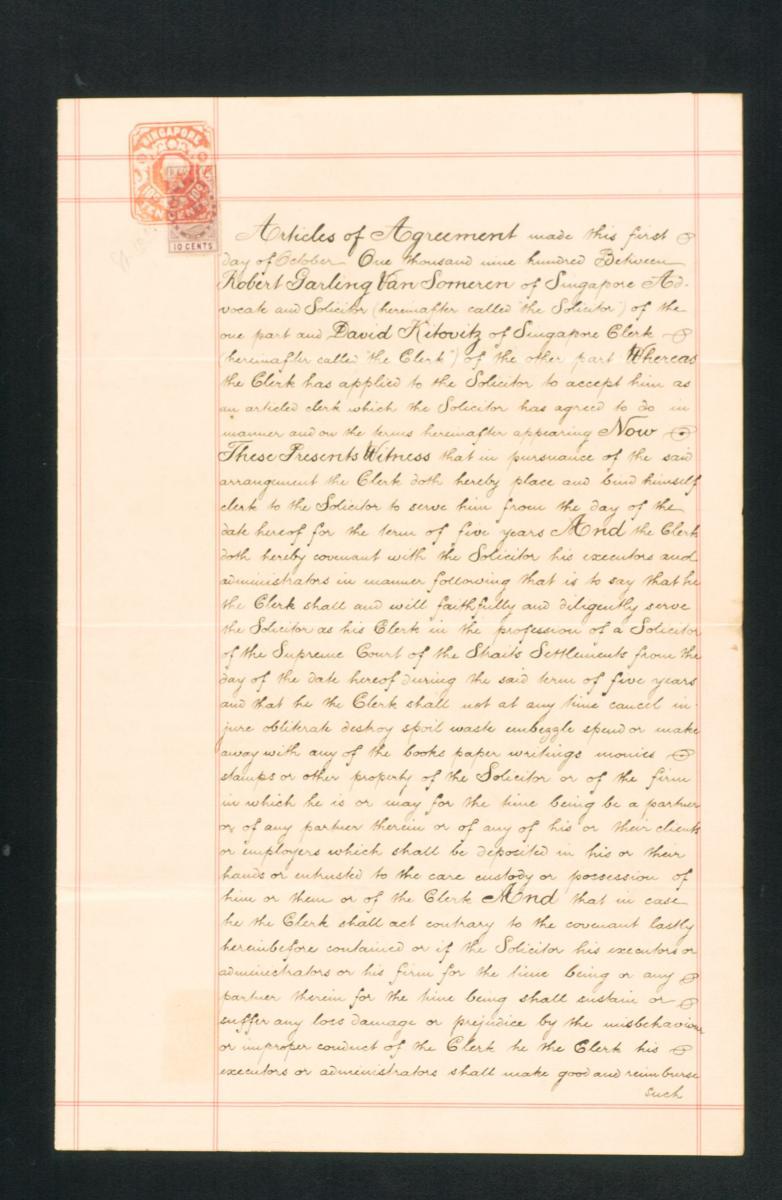 SINGAPORE
10C 10C
TEN CENTS
10 CENTS
Articles of Agreement made this first
day of October One thousand nine hundred Between
Robert Garling Van Someren of Singapore Ad-
vocate and Solicitor (hereinafter called "the Solicitor") of the
one part and David Kitovitz of Singapore Clerk
(hereinafter called "the Clerk") of the other part Whereas
the Clerk has applied to the Solicitor to accept him as
an articled clerk which the Solicitor has agreed to do in
manner and on the terms hereinafter appearing Now
These Presents Witness that in pursuance of the said
arrangement the Clerk doth hereby place and bind himself
clerk to the Solicitor to serve him from the day of the
date hereof for the term of five years And the Clerk
doth hereby covenant with the Solicitor his executors and
administrators in manner following that is to say that he
the Clerk shall and will faithfully and diligently serve
the Solicitor as his Clerk in the profession of a Solicitor
of the Supreme Court of the Straits Settlements from the
day of the date hereof during the said term of five years
and that he the Clerk shall not at any time cancel in-
jure obliterate destroy spoil waste embezzle spend or make
away with any of the books paper writings monies
stamps or other property of the Solicitor or of the firm
in which he is or may for the time being be a partner
or of any partner therein or of any of his or their clients
or employers which shall be deposited in his or their
hands or entrusted to the care custody or possession of
him or them or of the Clerk And that in case
he the Clerk shall act contrary to the covenant lastly
hereinbefore contained or if the Solicitor his executors or
administrators or his firm for the time being or any
partner therein for the time being shall sustain or
suffer any loss damage or prejudice by the misbehaviour
or improper conduct of the Clerk he the Clerk his
executors or administrators shall make good and reimburse
such